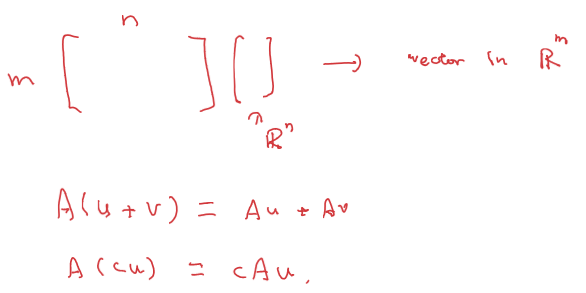 n
m [ ] [ ] → vector in ℝᵐ
↑
ℝⁿ
A(u + v) = Au + Av
A(cu) = cAu.